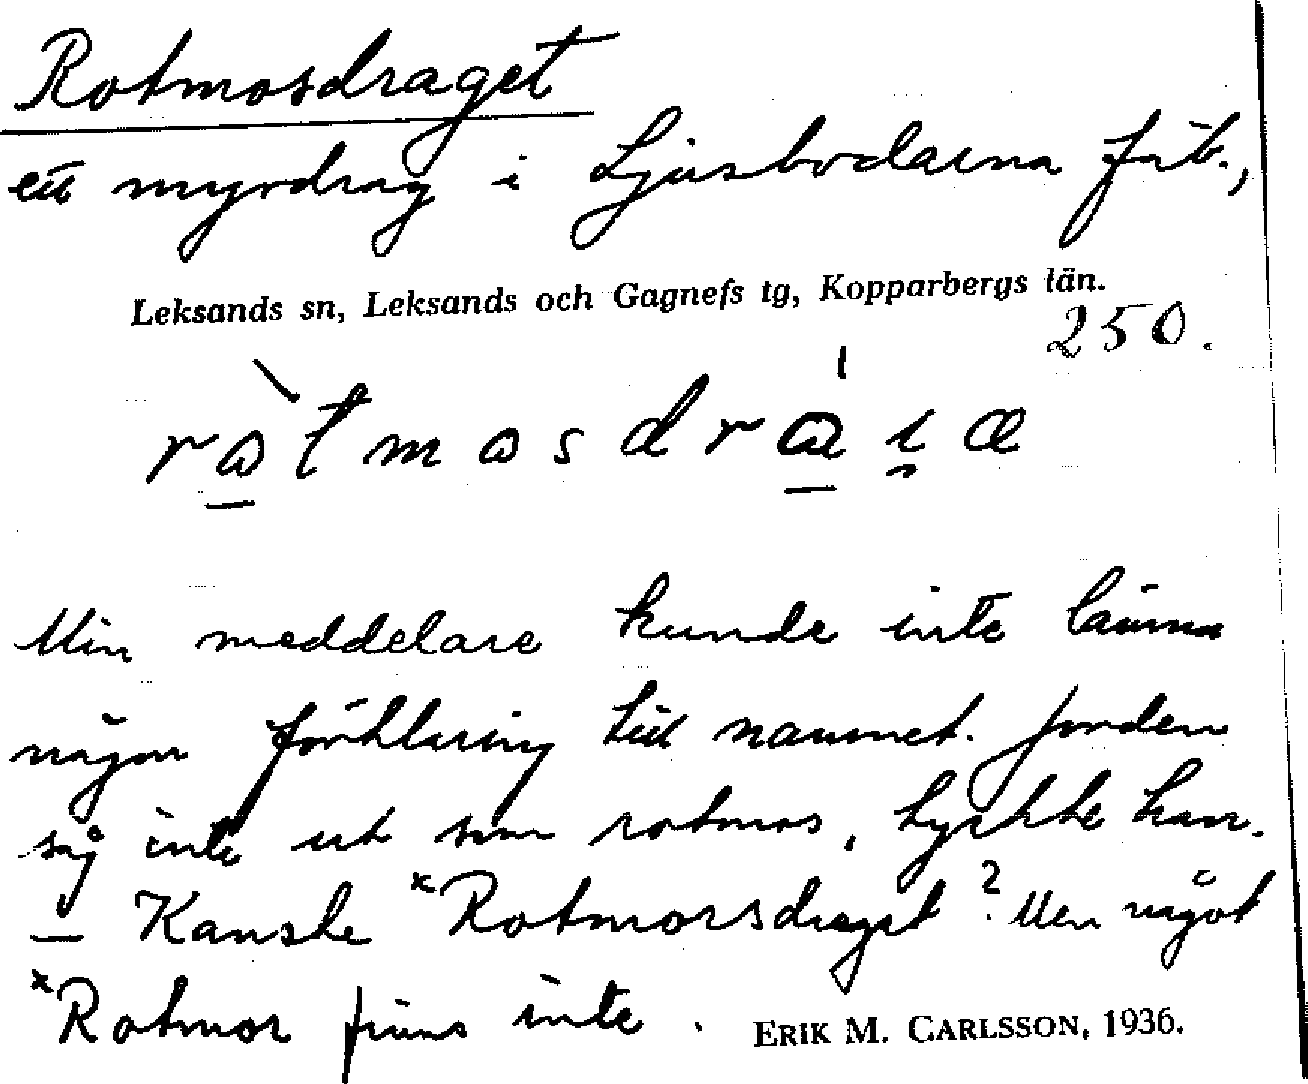 Rotmosdraget
ett myrdrag i Ljusbodarna fäb.,
Leksands sn, Leksands och Gagnefs tg, Kopparbergs län.
250.
Min meddelare kunde inte lämna
någon förklaring till namnet. Jorden
såg inte ut som rotmos, tyckte han.
— Kanske *Rotmorsdraget? Men något
*Rotmor finns inte.
ERIK M. CARLSSON, 1936.